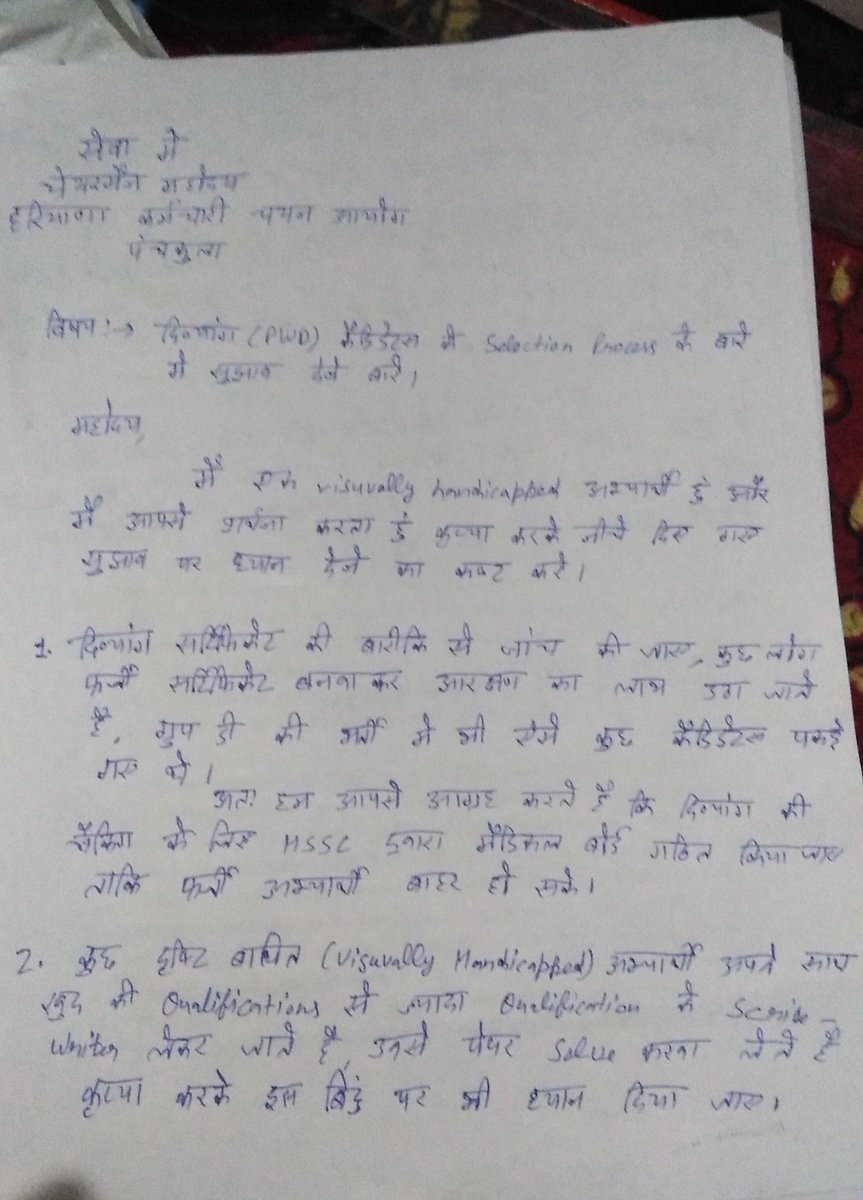 सेवा में
चेयरमैन महोदय
हरियाणा कर्मचारी चयन आयोग
पंचकुला
विषय :→ दिव्यांग (PWD) कैंडिडेटस के Selection Process के बारे
में सुझाव देने बारे।
महोदय,
मैं एक visuvally handicapped अभ्यार्थी हुं और
मैं आपसे प्रार्थना करता हुं कृप्या करके नीचे दिए गए
सुझाव पर ध्यान देने का कष्ट करे।
1. दिव्यांग सर्टिफिकेट की बारीकि से जांच की जाए, कुछ लोग
फर्जी सर्टिफिकेट बनवा कर आरक्षण का लाभ उठा जाते
है, ग्रुप डी की भर्ती मे भी ऐसे कुछ कैंडिडेटस पकड़े
गए थे।
अतः हम आपसे आग्रह करते है कि दिव्यांग की
चैकिंग के लिए HSSC द्वारा मैडिकल बोर्ड गठित किया जाए
ताकि फर्जी अभ्यार्थी बाहर हो सके।
2. कुछ दृष्टि बाधित (Visuvally Handicapped) अभ्यार्थी अपने साथ
खुद की Qualifications से ज्यादा Qualification के Scribe-
Writer लेकर जाते है, उनसे पेपर Solve करवा लेते है
कृप्या करके इस बिंदु पर भी ध्यान दिया जाए।